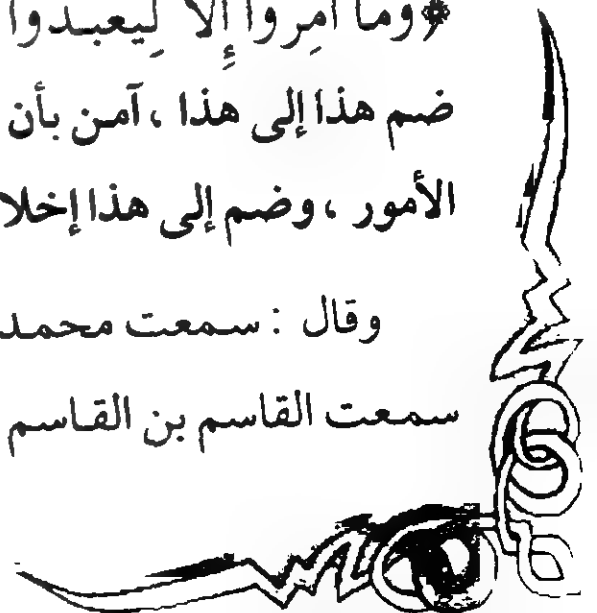 ﴿وما أمروا إلا لِيعبدوا
ضم هذا إلى هذا ، آمن بأن
الأمور ، وضم إلى هذا إخلا
وقال : سمعت محمد
سمعت القاسم بن القاسم